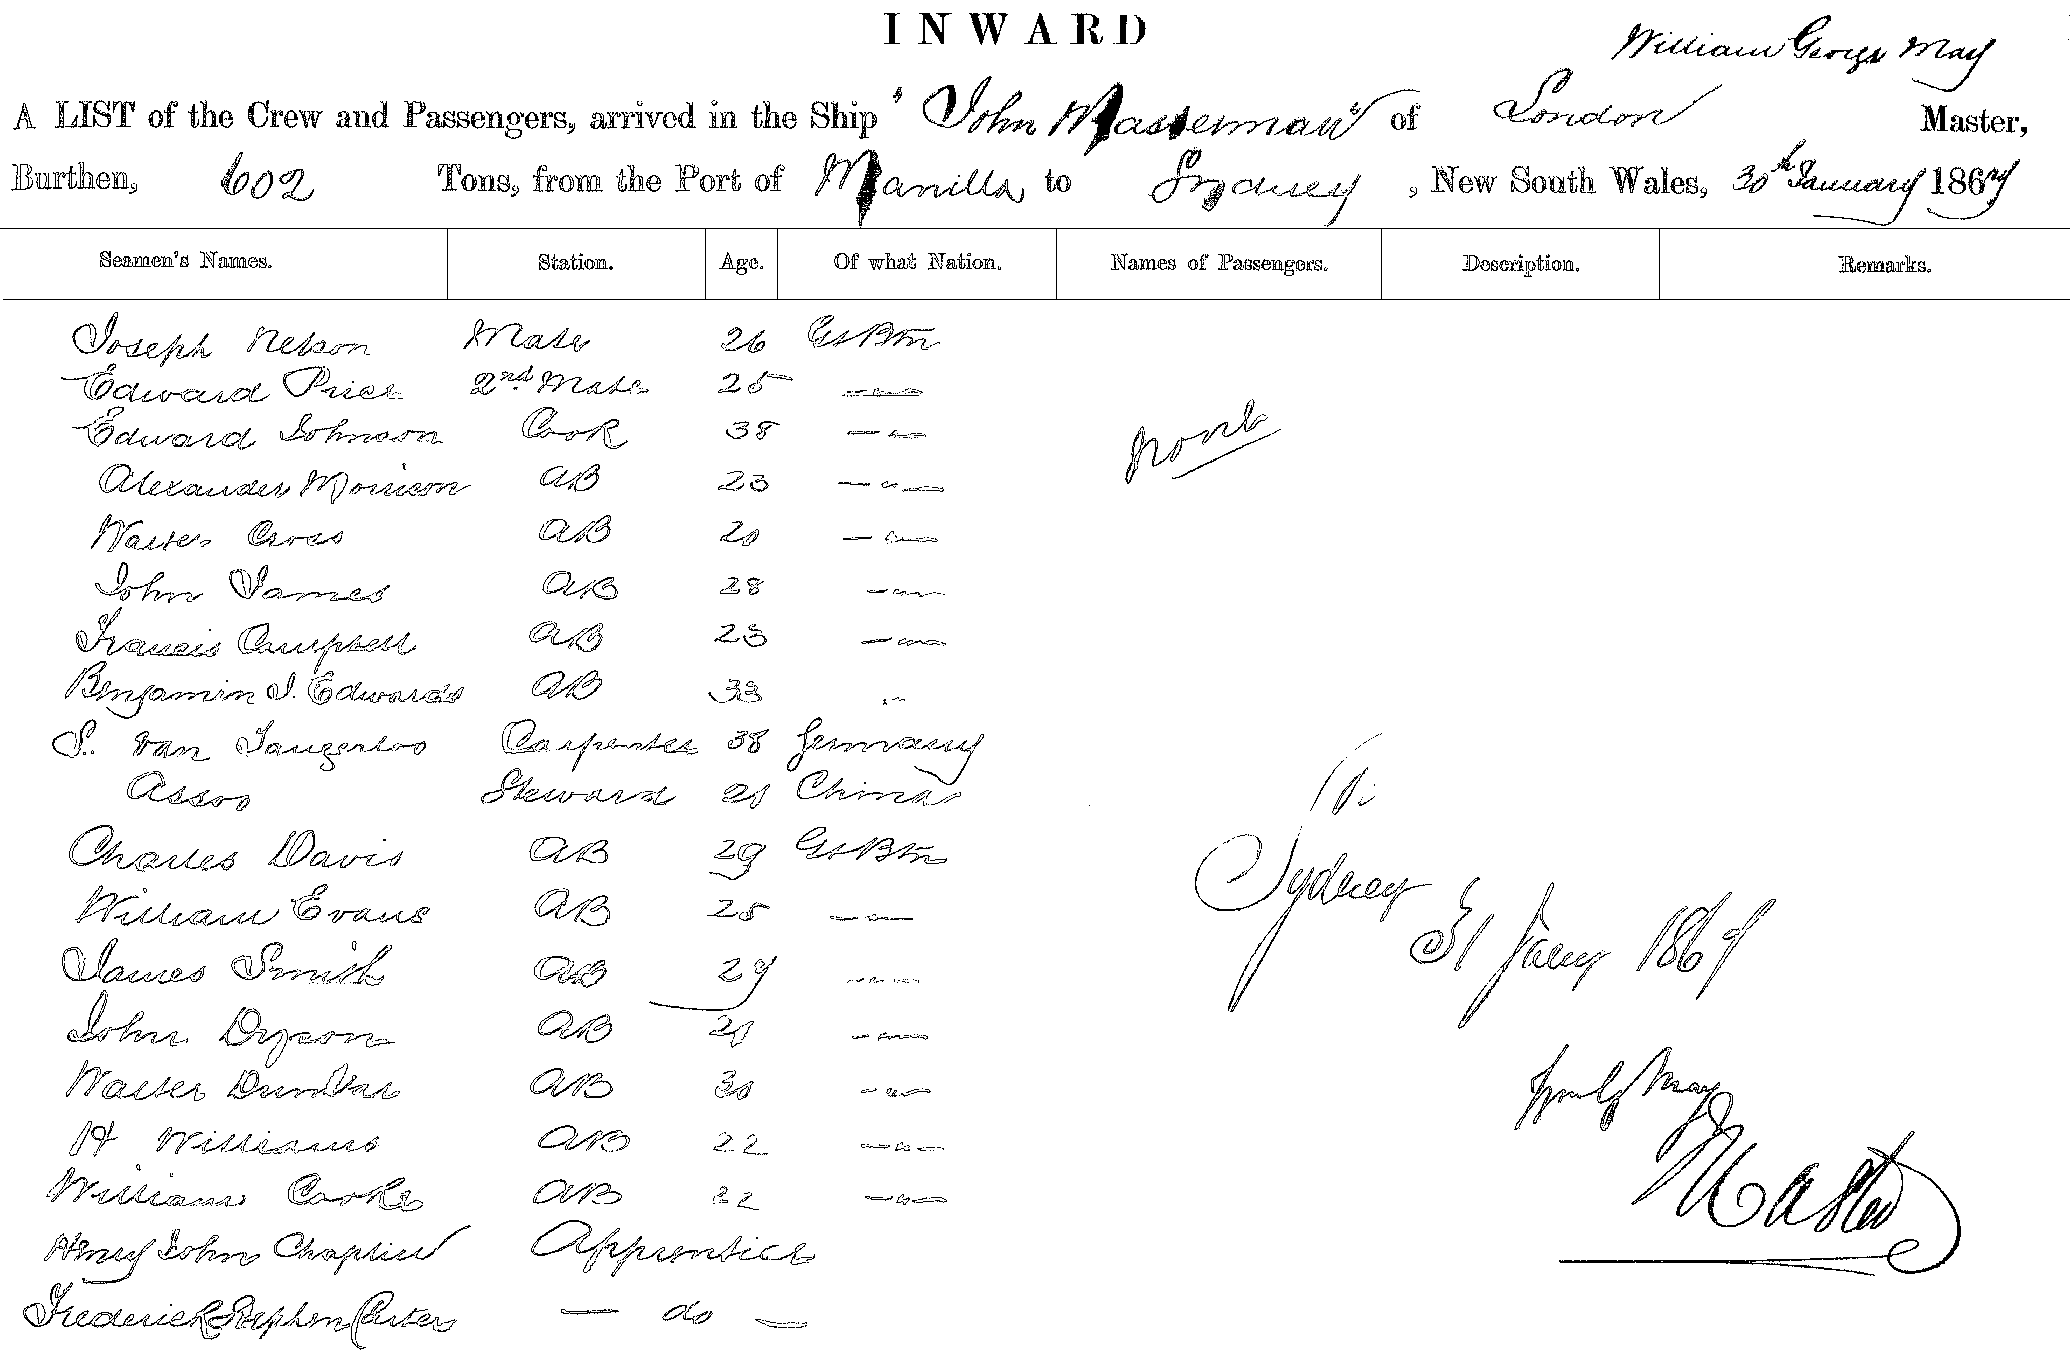 INWARD
William George May
A LIST of the Crew and Passengers, arrived in the Ship "John Wasserman" of London Master,
Burthen, 602 Tons, from the Port of Manilla to Sydney, New South Wales, 30th January 1867
Seamen's Names. Station. Age. Of what Nation. Names of Passengers. Description. Remarks.
Joseph Nelson Mate 26 Gt Btn
Edward Price 2nd Mate 25 — " —
Edward Johnson Cook 38 — " —
none
Alexander Morrison AB 23 — " —
Walter Cross AB 20 — " —
John James AB 28 — " —
Francis Campbell AB 23 — " —
Benjamin J. Edwards AB 33 "
S. Van Carpenter 38 Germany
Assoo Steward China
Charles Davis AB 29 Gt Btn
William Evans AB 25 — " —
Sydney
31 Jany 1867
James Smith AB 29 — " —
John Dyson AB — " —
Walter Dunbar AB 30 — " —
Wm G May
H Williams AB 22 — " —
Master
William Cooke AB 22 — " —
Henry John Chaplin Apprentice
Frederick Stephen Carter — do —